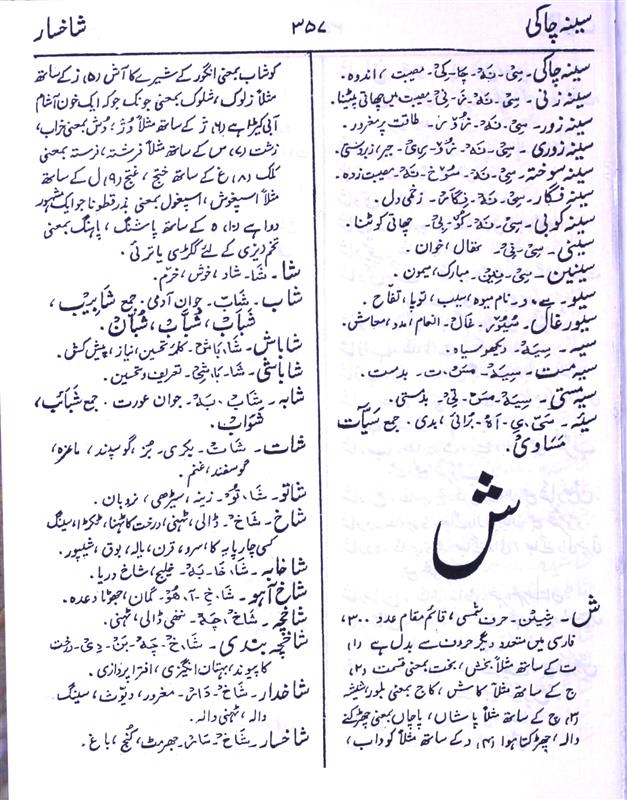 سینہ چاکی
۳۵۷
شاخسار
سینہ چاکی۔ سِی۔ نَہ۔ چَا۔ کِی۔ مصیبت، اندوہ۔
سینہ زنی۔ سِی۔ نَہ۔ زَ۔ نِی۔ مصیبت میں چھاتی پیٹنا۔
سینہ زور۔ سِی۔ نَہ۔ زُوْر۔ طاقت پر مغرور۔
سینہ زوری۔ سِی۔ نَہ۔ زُوْ۔ رِی۔ جبر، زبردستی۔
سینہ سوختہ۔ سِی۔ نَہ۔ سُوْخ۔ تَہ۔ مصیبت زدہ۔
سینہ فگار۔ سِی۔ نَہ۔ فِگَار۔ زخمی دل۔
سینہ کوبی۔ سِی۔ نَہ۔ کُوْ۔ بِی۔ چھاتی کوٹنا۔
سینی۔ سِی۔ نِی۔ تھال، خوان۔
سینین۔ سِی۔ نِیْن۔ مبارک، میمون۔
سیو۔ ے، و۔ نام میوہ، سیب، توپا، تفاح۔
سیورغال۔ سُیُوْر۔ غَال۔ انعام، مدد، معاش۔
سیہ۔ سِیَہ۔ دیکھو سیاہ۔
سیہ مست۔ سِیَہ۔ مَسْ۔ ت۔ بدمست۔
سیہ مستی۔ سِیَہ۔ مَسْ۔ تِی۔ بدمستی۔
سیئہ۔ سَیْ۔ یِ۔ أہ۔ برائی، بدی۔ جمع سَیِّآت
مَسَاوِیْ۔
ش
ش۔ شِیْن۔ حرف شمسی، قائم مقام عدد ۳۰۰،
فارسی میں متعدد دیگر حروف سے بدل ہے (۱)
ت کے ساتھ مثلاً بخش، بخت بمعنی قسمت (۲)
ج کے ساتھ مثلاً کاش، کاج بمعنی بلور، شیشہ
(۳) چ کے ساتھ مثلاً پاشاں، پاچاں بمعنی چھڑکنے
والا، چھڑکتا ہوا (۴) د کے ساتھ مثلاً گوداب،
گوشاب بمعنی انگور کے شیرے کا آش (۵) ز کے ساتھ
مثلاً زلوک، شلوک بمعنی جونک جو کہ ایک خون آشام
آبی کیڑا ہے (۶) ژ کے ساتھ مثلاً دژ، دش بمعنی خراب،
زشت (۷) س کے ساتھ مثلاً فرشتہ، فرستہ بمعنی
ملک (۸) غ کے ساتھ (۹) ل کے ساتھ
مثلاً اسپغوش، اسپغول بمعنی بذر قطونا جو ایک مشہور
دوا ہے (۱۰) ہ کے ساتھ پاشنگ، پاہنگ بمعنی
تخم ریزی کے لئے ککڑی یا ترئی۔
شا۔ شَا۔ شاد، خوش، خرّم۔
شاب۔ شَابّ۔ جوان آدمی۔ جمع شَابِیب،
شَبَاب، شُبَّاب، شُبَّان۔
شاباش۔ شَا۔ بَاش۔ کلمۂ تحسین، نیاز، پیش کش۔
شاباشی۔ شَا۔ بَا۔ شِی۔ تعریف و تحسین۔
شابہ۔ شَابّ۔ بَہ۔ جوان عورت۔ جمع شَبَائِب،
شَوَابّ۔
شات۔ شَات۔ بکری۔ بز، گوسپند، ماعزہ،
گوسفند، غنم۔
شاتو۔ شَا۔ تُوْ۔ زینہ، سیڑھی، نردبان۔
شاخ۔ شَاخْ۔ ڈالی، ٹہنی، درخت کا ٹہنا، ٹکڑا، سینگ
کسی چارپایہ کا، سرو، قرن، بالہ، بوق، شیپور۔
شاخابہ۔ شَا۔ خَا۔ بَہ۔ خلیج، شاخ دریا۔
شاخ آہو۔ شَا۔ خِ۔ آ۔ ہُوْ۔ کمان، جھوٹا وعدہ۔
شاخچہ۔ شَاخْ۔ چَہ۔ ننھی ڈالی، ٹہنی۔
شاخچہ بندی۔ شَاخْ۔ چَہ۔ بَنْ۔ دِیْ۔ درخت
کا پیوند، بہتان انگیزی، افترا پردازی۔
شاخدار۔ شَاخْ۔ دَار۔ مغرور، دیوث، سینگ
والا، ٹہنی والا۔
شاخسار۔ شَاخْ۔ سَار۔ جھرمٹ، کنج، باغ۔